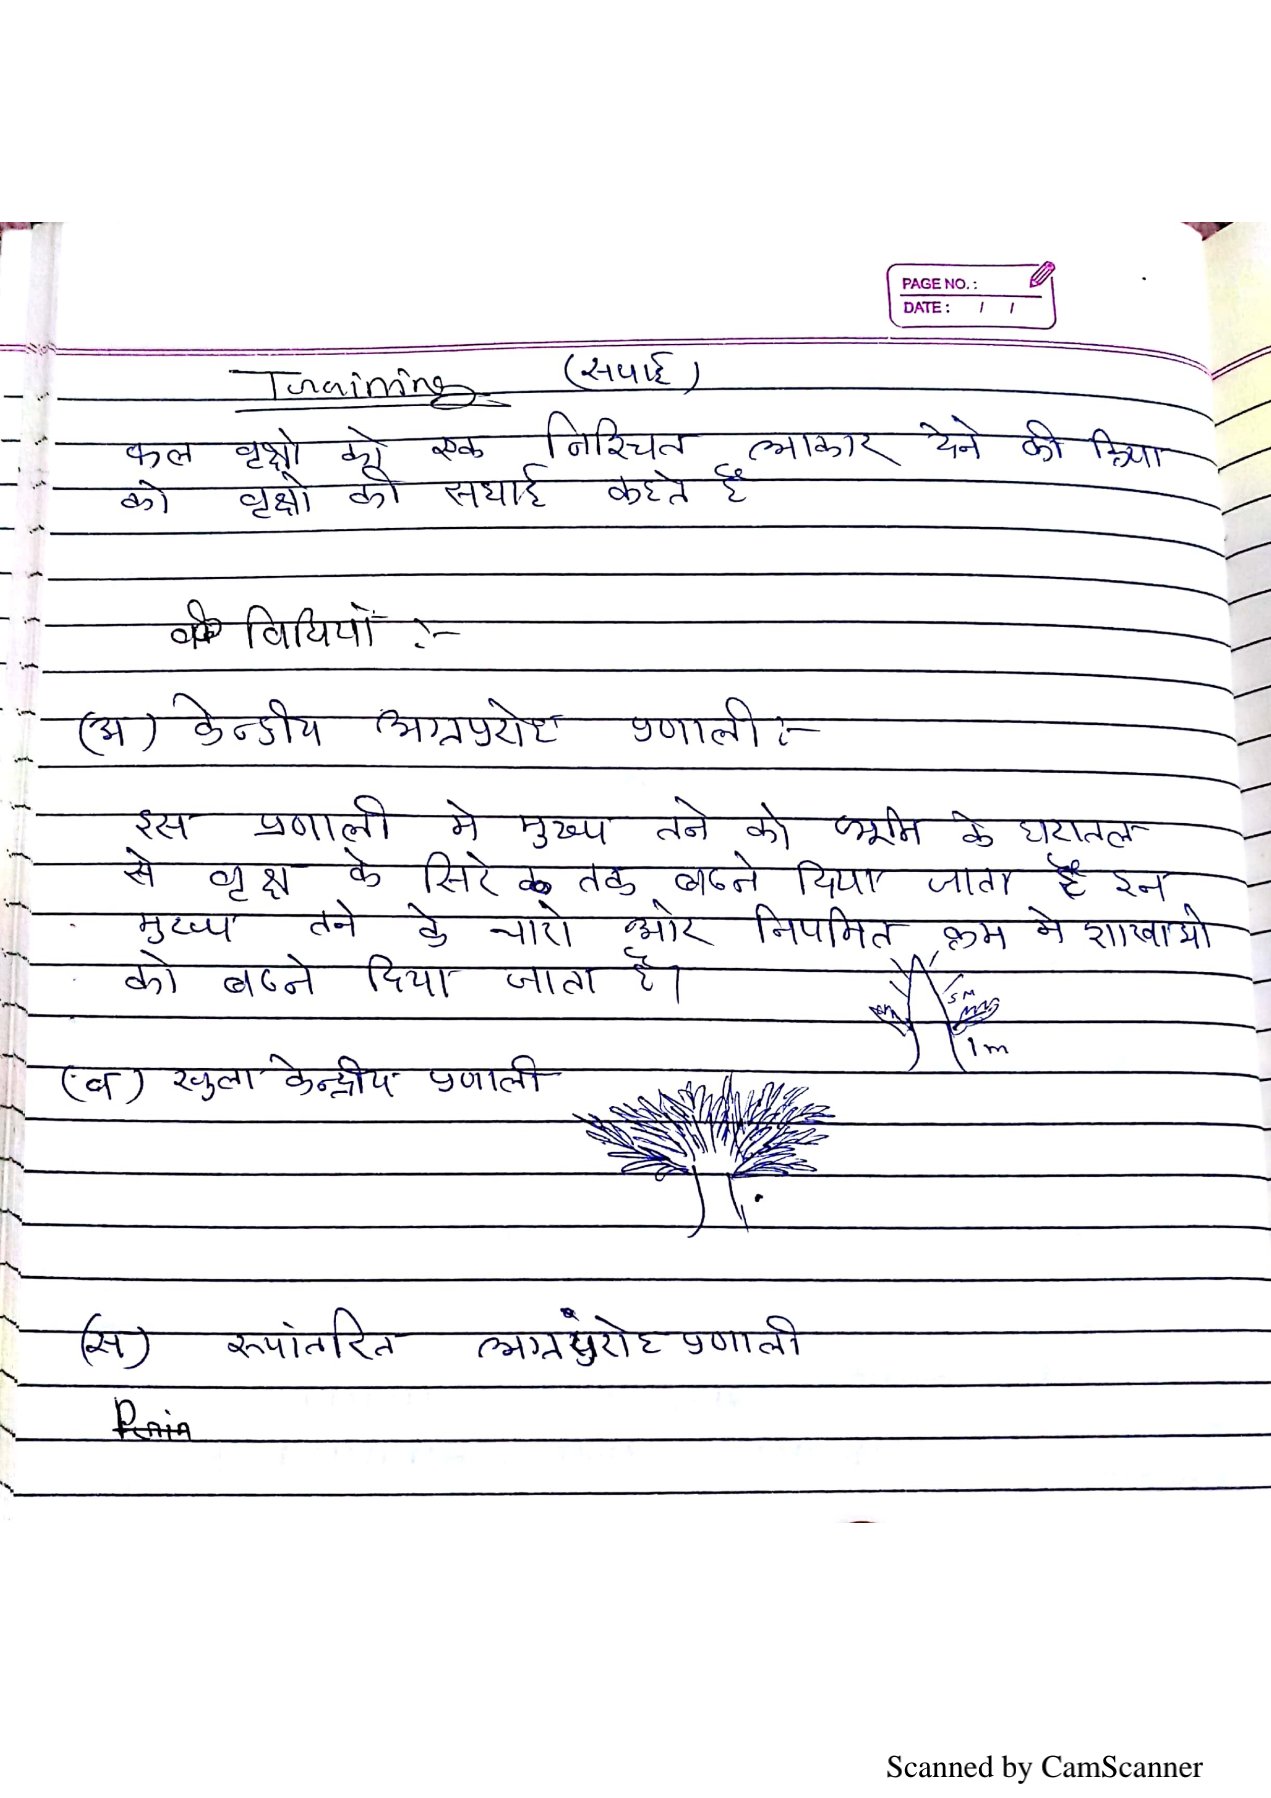 PAGE NO.:
DATE: / /
Training (सधाई)
फल वृक्षो को एक निश्चित आकार देने की क्रिया
को वृक्षो की सधाई कहते है
की विधियाँ :-
(अ) केन्द्रीय अग्रप्ररोह प्रणाली :-
इस प्रणाली मे मुख्य तने को भूमि के धरातल
से वृक्ष के सिरे तक बढने दिया जाता है इन
मुख्य तने के चारो ओर नियमित क्रम मे शाखाओ
को बढने दिया जाता है।
5 M
1 m
(ब) खुला केन्द्रीय प्रणाली
(स) रूपांतरित अग्रप्ररोह प्रणाली
Scanned by CamScanner